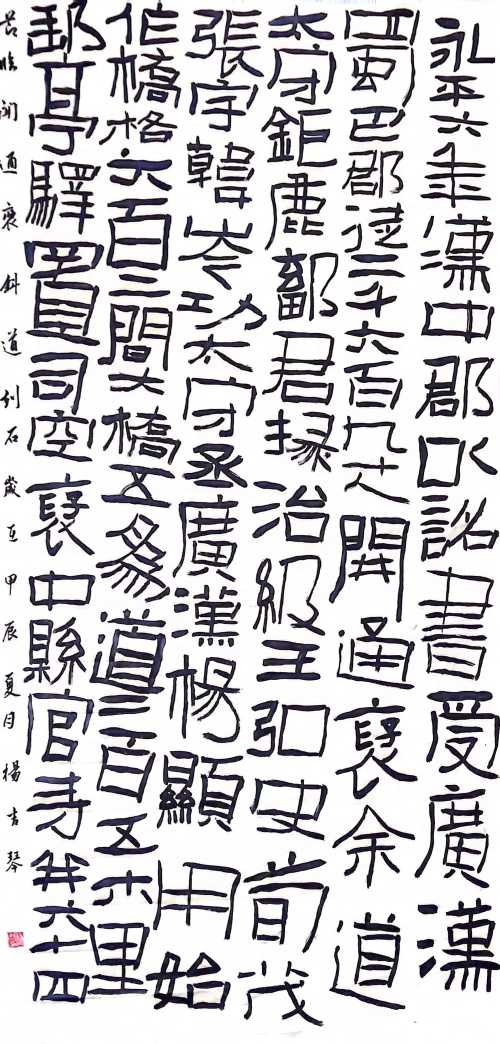 永平六年漢中郡以詔書受廣漢
蜀巴郡徒二千六百九十人開通褒余道
太守鉅鹿鄐君掾治級王弘史荀茂
張宇韓岑功太守丞廣漢楊顯用始
作橋格六百三間大橋五為道二百五十八里
郵亭驛置司空褒中縣官寺并六十四
臨開通褒斜道刻石歲在甲辰夏月楊吉琴